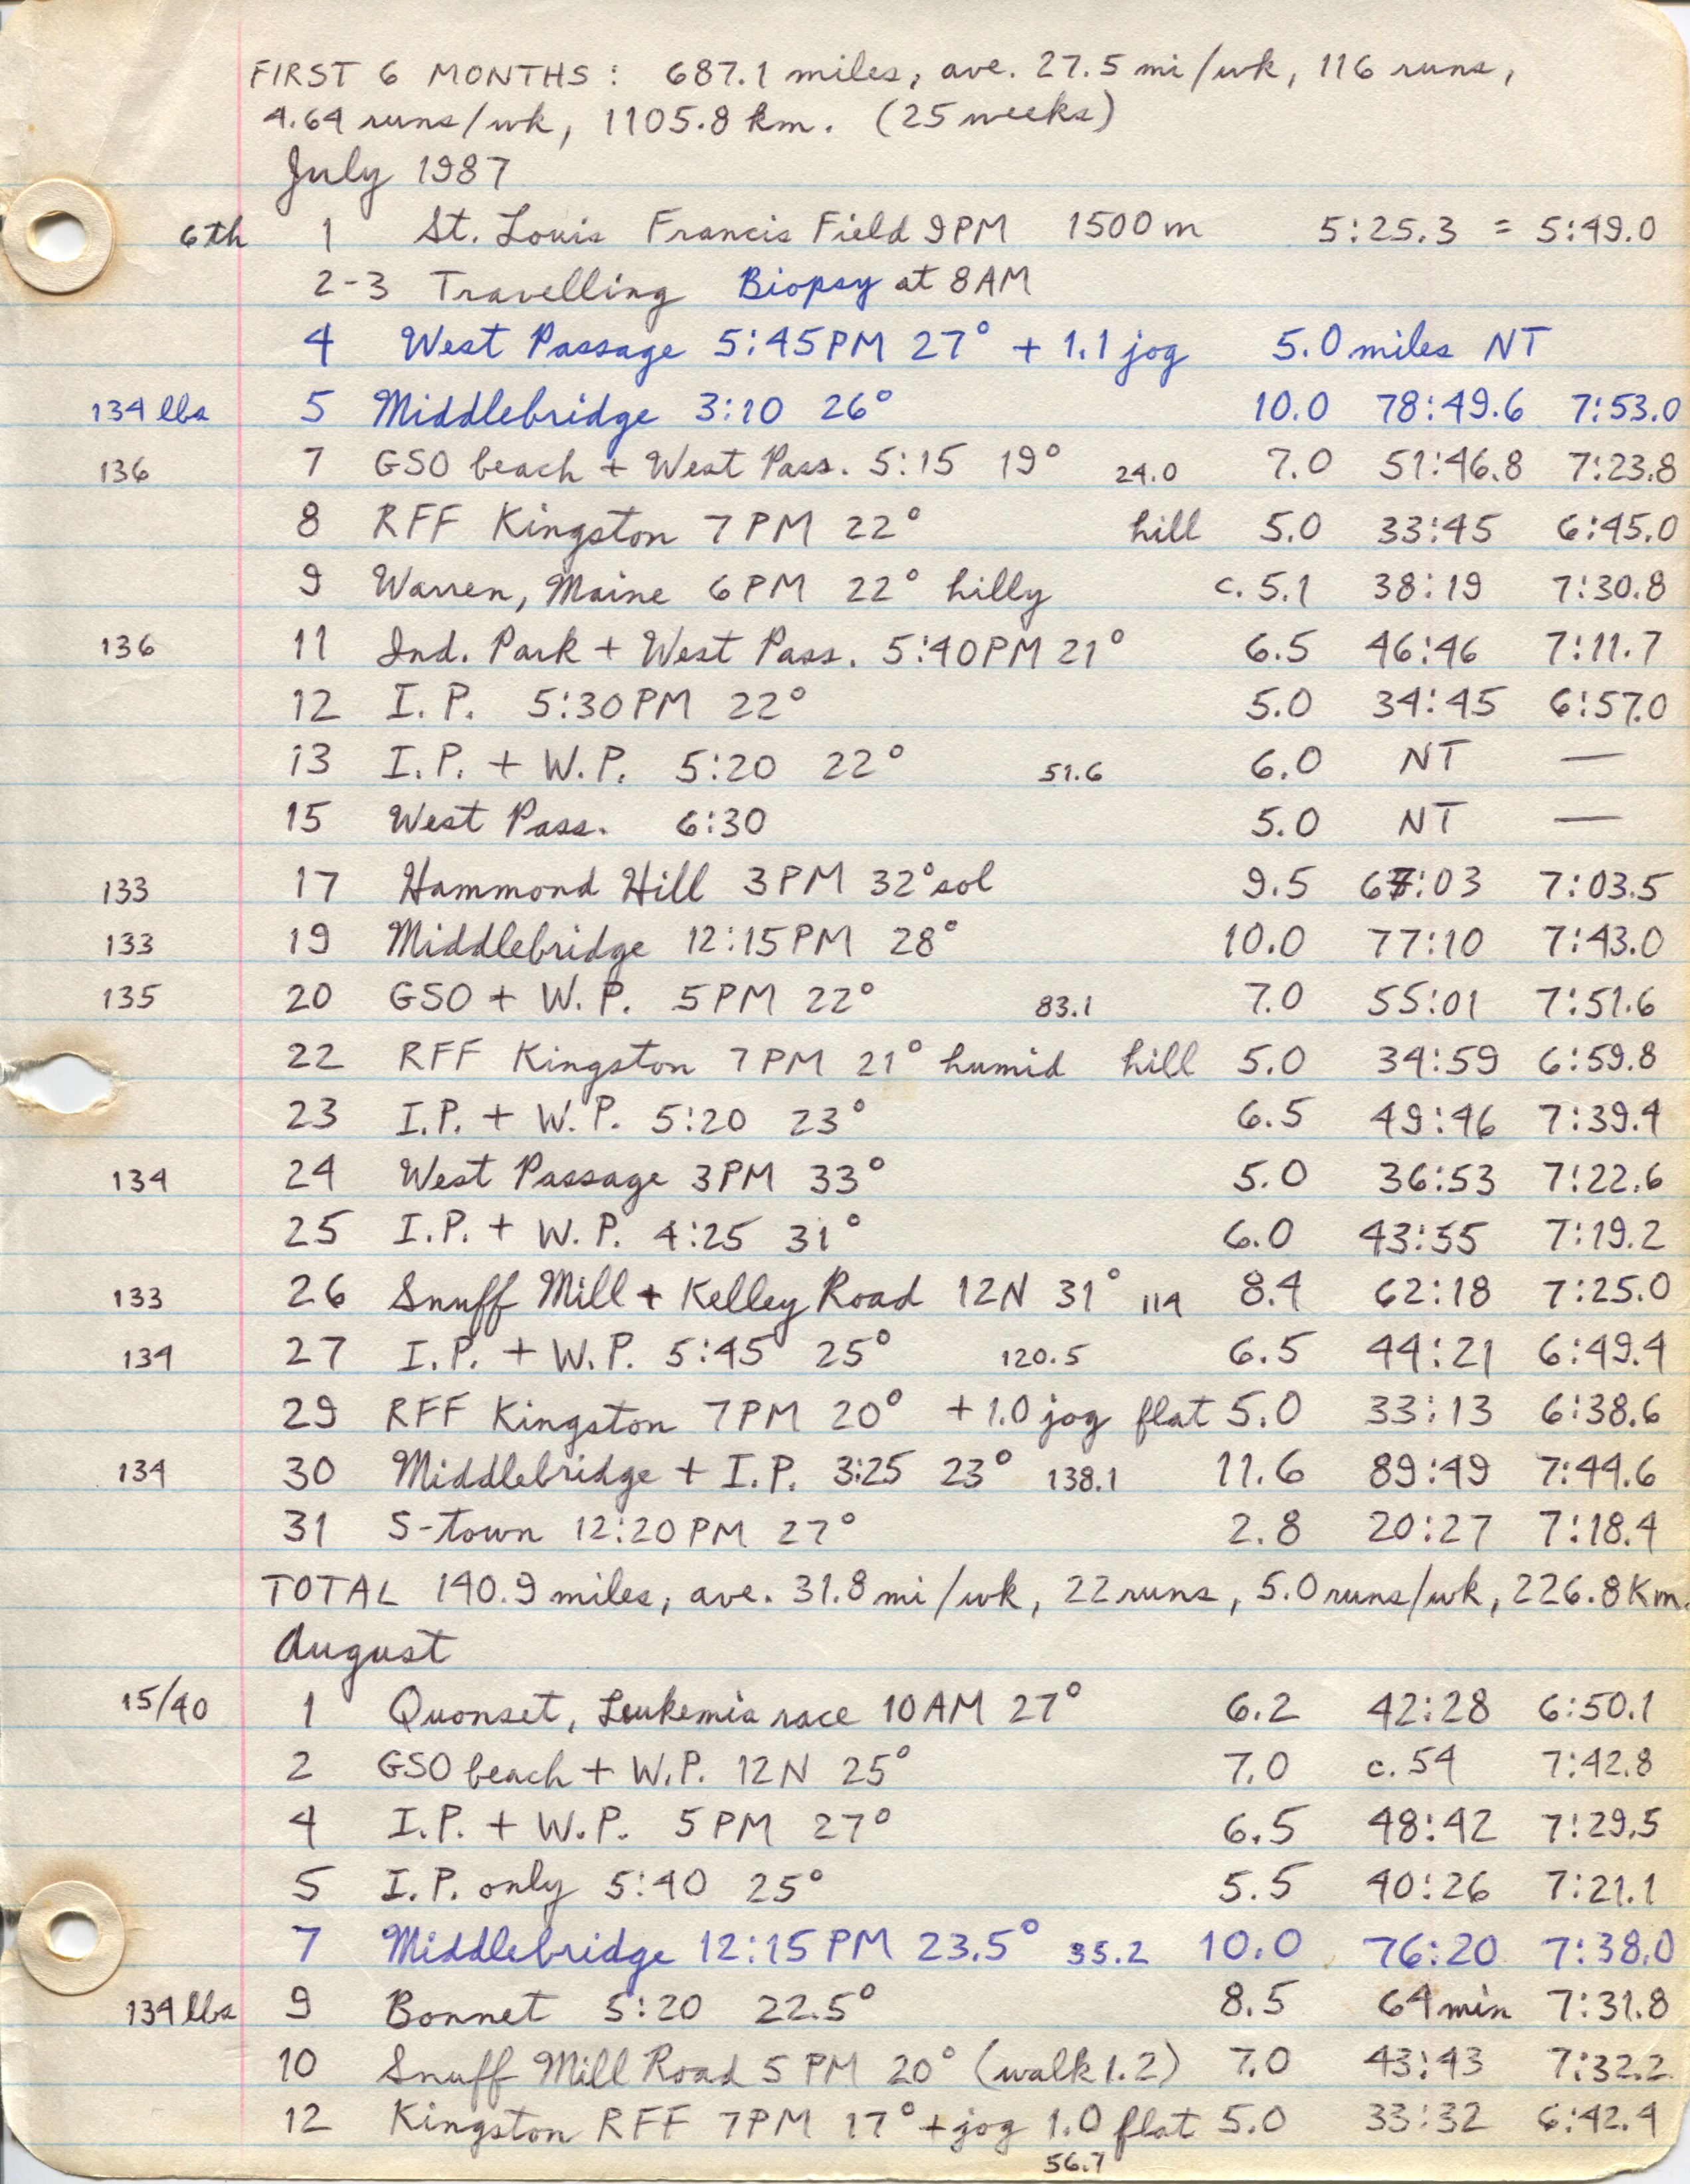 FIRST 6 MONTHS: 687.1 miles, ave. 27.5 mi/wk, 116 runs,
4.64 runs/wk, 1105.8 km. (25 weeks)
July 1987
6th 1 St. Louis Francis Field 9PM 1500 m 5:25.3 = 5:49.0
2-3 Travelling Biopsy at 8AM
4 West Passage 5:45PM 27° + 1.1 jog 5.0 miles NT
134 lbs 5 Middlebridge 3:10 26° 10.0 78:49.6 7:53.0
136 7 GSO beach + West Pass. 5:15 19° 24.0 7.0 51:46.8 7:23.8
8 RFF Kingston 7PM 22° hill 5.0 33:45 6:45.0
9 Warren, Maine 6PM 22° hilly c. 5.1 38:19 7:30.8
136 11 Ind. Park + West Pass. 5:40PM 21° 6.5 46:46 7:11.7
12 I.P. 5:30PM 22° 5.0 34:45 6:57.0
13 I.P. + W.P. 5:20 22° 51.6 6.0 NT —
15 West Pass. 6:30 5.0 NT —
133 17 Hammond Hill 3PM 32° sol 9.5 67:03 7:03.5
133 19 Middlebridge 12:15PM 28° 10.0 77:10 7:43.0
135 20 GSO + W.P. 5PM 22° 83.1 7.0 55:01 7:51.6
22 RFF Kingston 7PM 21° humid hill 5.0 34:59 6:59.8
23 I.P. + W.P. 5:20 23° 6.5 49:46 7:39.4
134 24 West Passage 3PM 33° 5.0 36:53 7:22.6
25 I.P. + W.P. 4:25 31° 6.0 43:55 7:19.2
133 26 Snuff Mill + Kelley Road 12N 31° 114 8.4 62:18 7:25.0
134 27 I.P. + W.P. 5:45 25° 120.5 6.5 44:21 6:49.4
29 RFF Kingston 7PM 20° + 1.0 jog flat 5.0 33:13 6:38.6
134 30 Middlebridge + I.P. 3:25 23° 138.1 11.6 89:49 7:44.6
31 S-town 12:20PM 27° 2.8 20:27 7:18.4
TOTAL 140.9 miles, ave. 31.8 mi/wk, 22 runs, 5.0 runs/wk, 226.8 Km.
August
15/40 1 Quonset, Leukemia race 10AM 27° 6.2 42:28 6:50.1
2 GSO beach + W.P. 12N 25° 7.0 c. 54 7:42.8
4 I.P. + W.P. 5PM 27° 6.5 48:42 7:29.5
5 I.P. only 5:40 25° 5.5 40:26 7:21.1
7 Middlebridge 12:15PM 23.5° 35.2 10.0 76:20 7:38.0
134 lbs 9 Bonnet 5:20 22.5° 8.5 64 min 7:31.8
10 Snuff Mill Road 5PM 20° (walk 1.2) 7.0 43:43 7:32.2
12 Kingston RFF 7PM 17° + jog 1.0 flat 5.0 33:32 6:42.4
56.7